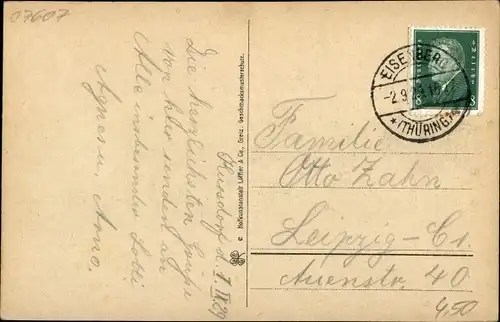 07607
Kursdorf d. 1. IX 29
Die herzlichsten Grüße
von hier sendet an
Alle insbesondre Lotti
Agnes u. Arno.
© Hofkunstanstalt Löffler & Co., Greiz. Geschmacksmusterschutz.
EISENBERG
-2.9.29
*(THÜRING.)
8 8
Familie
Otto Zahn
Leipzig - C1.
Auenstr. 40
4,50